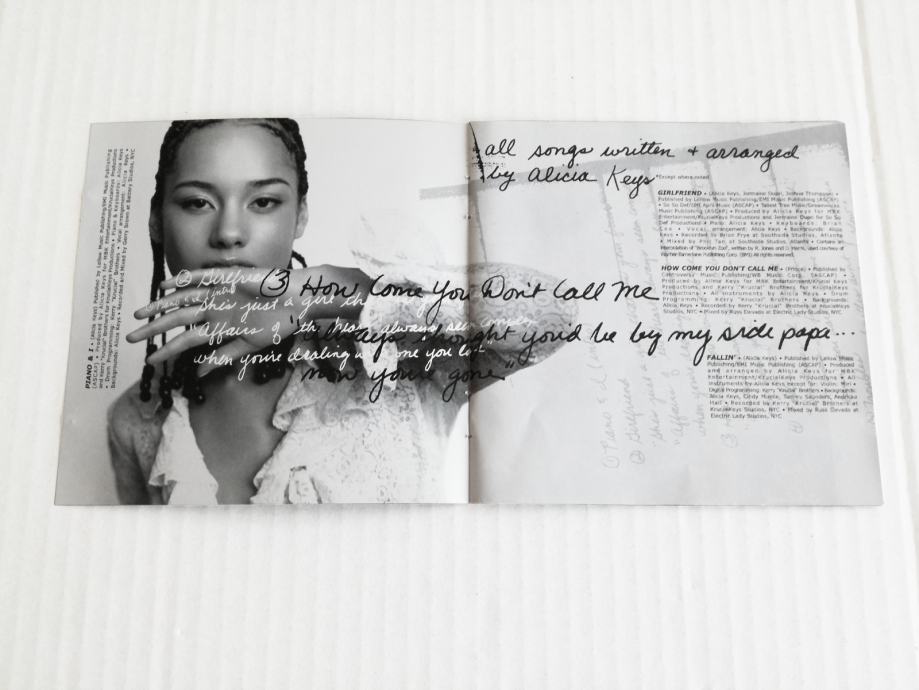 PIANO & I • (Alicia Keys) Published by Lellow Music Publishing/EMI Music Publishing
(ASCAP) • Produced by Alicia Keys for MBK Entertainment/KrucialKeys Productions
and Kerry "Krucial" Brothers for KrucialKeys Productions • Piano & Keyboards: Alicia Keys
• Drum Programming: Kerry "Krucial" Brothers • Vocal arrangement: Alicia Keys •
Backgrounds: Alicia Keys • Recorded and Mixed by Gerry Brown at Battery Studios, NYC
② Girlfriend
She's just a girl
"Affairs of the heart always seem
when you're dealing one you
③ How Come You Don't Call Me
"always thought you'd be by my side papa...
now you're gone"
all songs written + arranged
by Alicia Keys *Except where noted
GIRLFRIEND • (Alicia Keys, Jermaine Dupri, Joshua Thompson) •
Published by Lellow Music Publishing/EMI Music Publishing (ASCAP)
• So So Def/EMI April Music (ASCAP) • Tallest Tree Music/
Music Publishing (ASCAP) • Produced by Alicia Keys for MBK
Entertainment/KrucialKeys Productions and Jermaine Dupri for So So
Def Productions • Piano: Alicia Keys • Keyboards: Brian
• Vocal arrangement: Alicia Keys • Backgrounds: Alicia
Keys • Recorded by Brian Frye at Southside Studios, Atlanta
• Mixed by Phil Tan at Southside Studios, Atlanta • Contains an
interpolation of "Brooklyn Zoo", written by R. Jones and D. Harris, used courtesy of
Warner-Tamerlane Publishing Corp. (BMI) All rights reserved.
HOW COME YOU DON'T CALL ME • (Prince) • Published by
Controversy Music Publishing/WB Music Corp. (ASCAP) •
Produced by Alicia Keys for MBK Entertainment/Krucial Keys
Productions and Kerry "Krucial" Brothers for KrucialKeys
Productions • All Instruments by Alicia Keys • Drum
Programming: Kerry "Krucial" Brothers • Backgrounds:
Alicia Keys • Recorded by Kerry "Krucial" Brothers at KrucialKeys
Studios, NYC • Mixed by Russ Elevado at Electric Lady Studios, NYC
FALLIN' • (Alicia Keys) • Published by Lellow Music
Publishing/EMI Music Publishing (ASCAP) • Produced
and arranged by Alicia Keys for MBK
Entertainment/KrucialKeys Productions • All
Instruments by Alicia Keys except for: Violin: Miri •
Digital Programming: Kerry "Krucial" Brothers • Backgrounds:
Alicia Keys, Cindy Mizelle, Tammy Saunders, Andricka
Hall • Recorded by Kerry "Krucial" Brothers at
KrucialKeys Studios, NYC • Mixed by Russ Elevado at
Electric Lady Studios, NYC